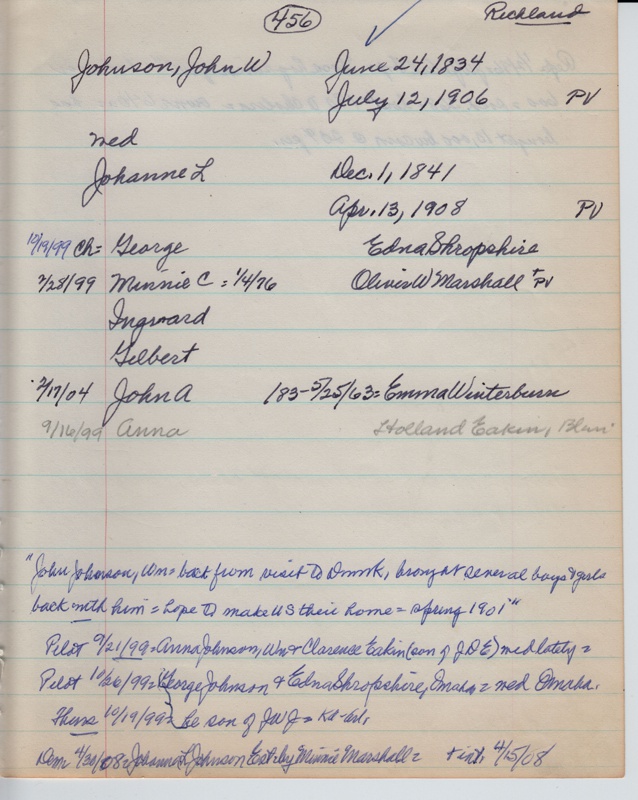 456
Richland
Johnson, John W June 24, 1834
July 12, 1906 PV
med
Johanne L Dec. 1, 1841
Apr. 13, 1908 PV
10/19/99 Ch= George Edna Shropshire
2/28/99 Minnie C = 1/4/76 Oliver W Marshall + PV
Ingward
Gilbert
2/17/04 John A 183-5/25/63= Emma Winterburn
9/16/99 Anna Holland Eakin, Blair
"John Johnson, Wn= back from visit to Dnmrk, brought several boys & girls
back with him = hope to make US their home = spring 1901"
Pilot 9/21/99= Anna Johnson, Wn & Clarence Eakin (son of J.D.E) med lately =
Pilot 10/26/99= George Johnson & Edna Shropshire, Omaha = med Omaha.
Thurs 10/19/99= be son of JWJ=
Dem 4/30/08= Johanne L Johnson Est= by Minnie Marshall = + int. 4/15/08